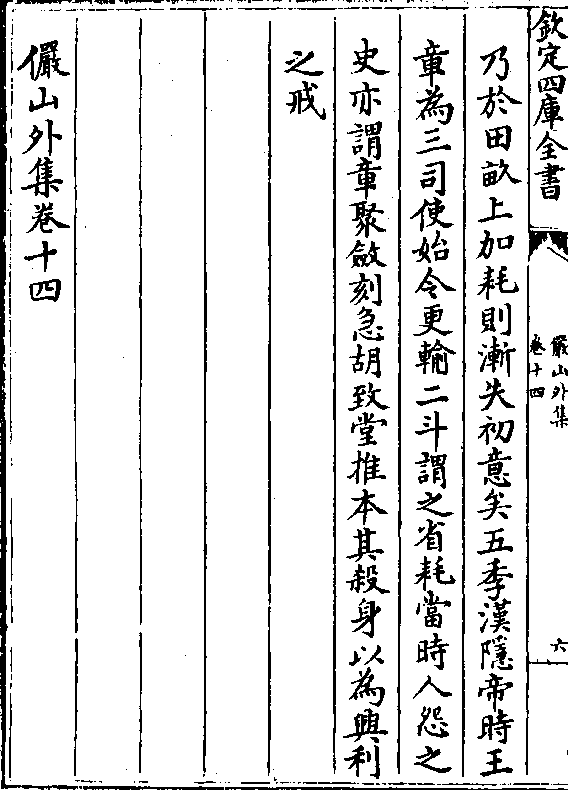 欽定四庫全書
儼山外集
卷十四
六
乃於田畝上加耗則漸失初意矣五季漢隱帝時王
章為三司使始令更輸二斗謂之省耗當時人怨之
史亦謂章聚斂刻急胡致堂推本其殺身以為興利
之戒
儼山外集卷十四